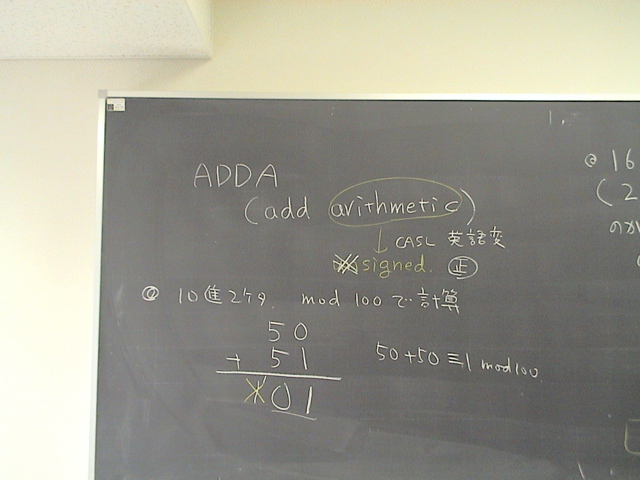 ADDA
(add arithmetic)
↓ CASL 英語変
signed. ㊣
@ 10進2ケタ. mod 100で計算
50
+ 51
101
50+50≡1 mod 100
@ 16
(2
のか